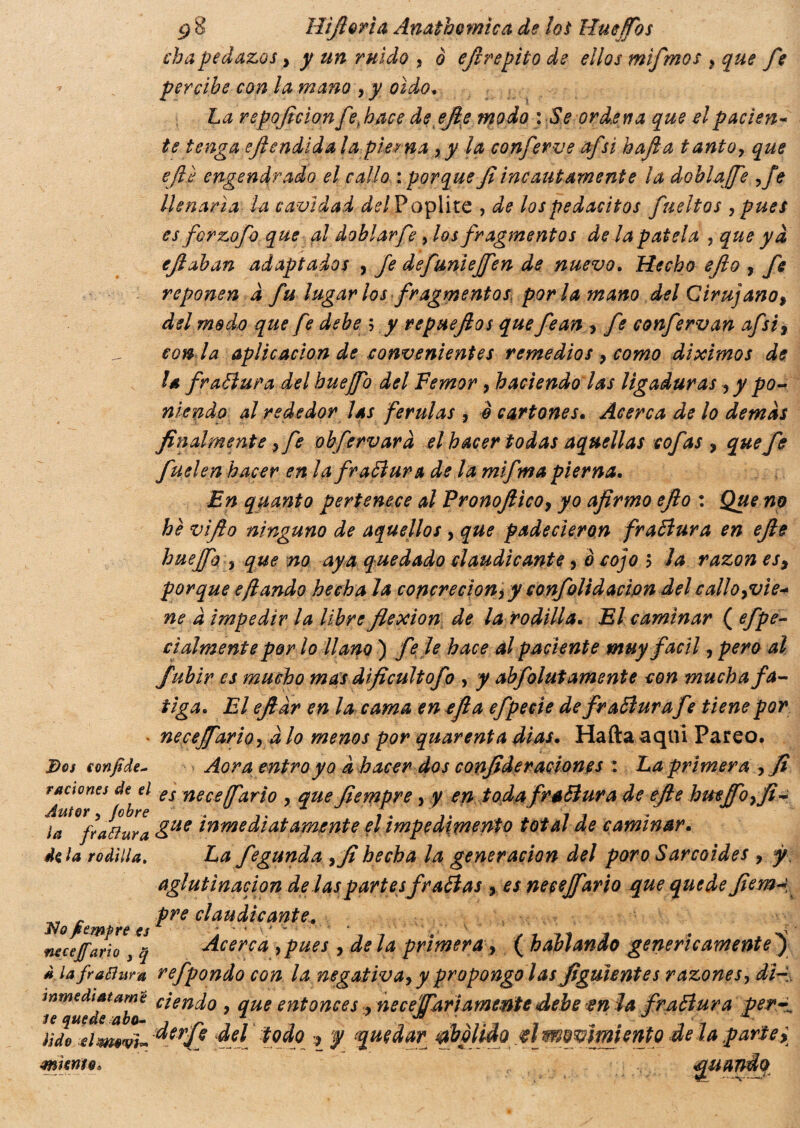 98 Hiſtoria Anathomica de los Hueſſos
cha pedazos, y un ruido, ò eſtrepito de ellos miſmos, que ſe
percibe con la mano, y oìdo.
La repoſicion ſe hace de eſte modo: Se ordena que el pacien-
te tenga eſtendida la pierna, y la conſerve aſsi haſta tanto, que
eſtè engendrado el callo: porque ſi incautamente la doblaſſe, ſe
llenarìa la cavidad del Poplite, de los pedacitos ſueltos, pues
es forzoſo que al doblarſe, los fragmentos de la patela, que yà
eſtaban adaptados, ſe deſunieſſen de nuevo. Hecho eſto, ſe
reponen à ſu lugar los fragmentos por la mano del Cirujano,
del modo que ſe debe; y repueſtos que ſean, ſe conſervan aſsi,
con la aplicacion de convenientes remedios, como diximos de
la fractura del hueſſo del Femor, haciendo las ligaduras, y po-
niendo al rededor las ferulas, ò cartones. Acerca de lo demàs
finalmente, ſe obſervarà el hacer todas aquellas coſas, que ſe
ſuelen hacer en la fractura de la miſma pierna.
En quanto pertenece al Pronoſtico, yo afirmo eſto: Que no
hè viſto ninguno de aquellos, que padecieron fractura en eſte
hueſſo, que no aya quedado claudicante, ò cojo; la razon es,
porque eſtando hecha la concrecion, y conſolidacion del callo, vie-
ne à impedir la libre flexion de la rodilla. El caminar (eſpe-
cialmente por lo llano) ſe le hace al paciente muy facil, pero al
ſubir es mucho mas dificultoſo, y abſolutamente con mucha fa-
tiga. El eſtàr en la cama en eſta eſpecie de fractura ſe tiene por
neceſſario, à lo menos por quarenta dias. Haſta aqui Pareo.
Aora entro yo à hacer dos conſideraciones: La primera, ſi
es neceſſario, que ſiempre, y en toda fractura de eſte hueſſo, ſi-
gue inmediatamente el impedimento total de caminar.
La ſegunda, ſi hecha la generacion del poro Sarcoides, y
aglutinacion de las partes fractas, es neceſſario que quede ſiem-
pre claudicante.
Acerca, pues, de la primera, (hablando genericamente)
reſpondo con la negativa, y propongo las ſiguientes razones, di-
ciendo, que entonces, neceſſariamente debe en la fractura per-
derſe del todo, y quedar abolido el movimiento de la parte,
quando
Dos conſide-
raciones de el
Autor, ſobre
la fractura
de la rodilla.
No ſiempre es
neceſſario, q̃
à la fractura
inmediatamẽ
te quede abo-
lido el movi-
miento.